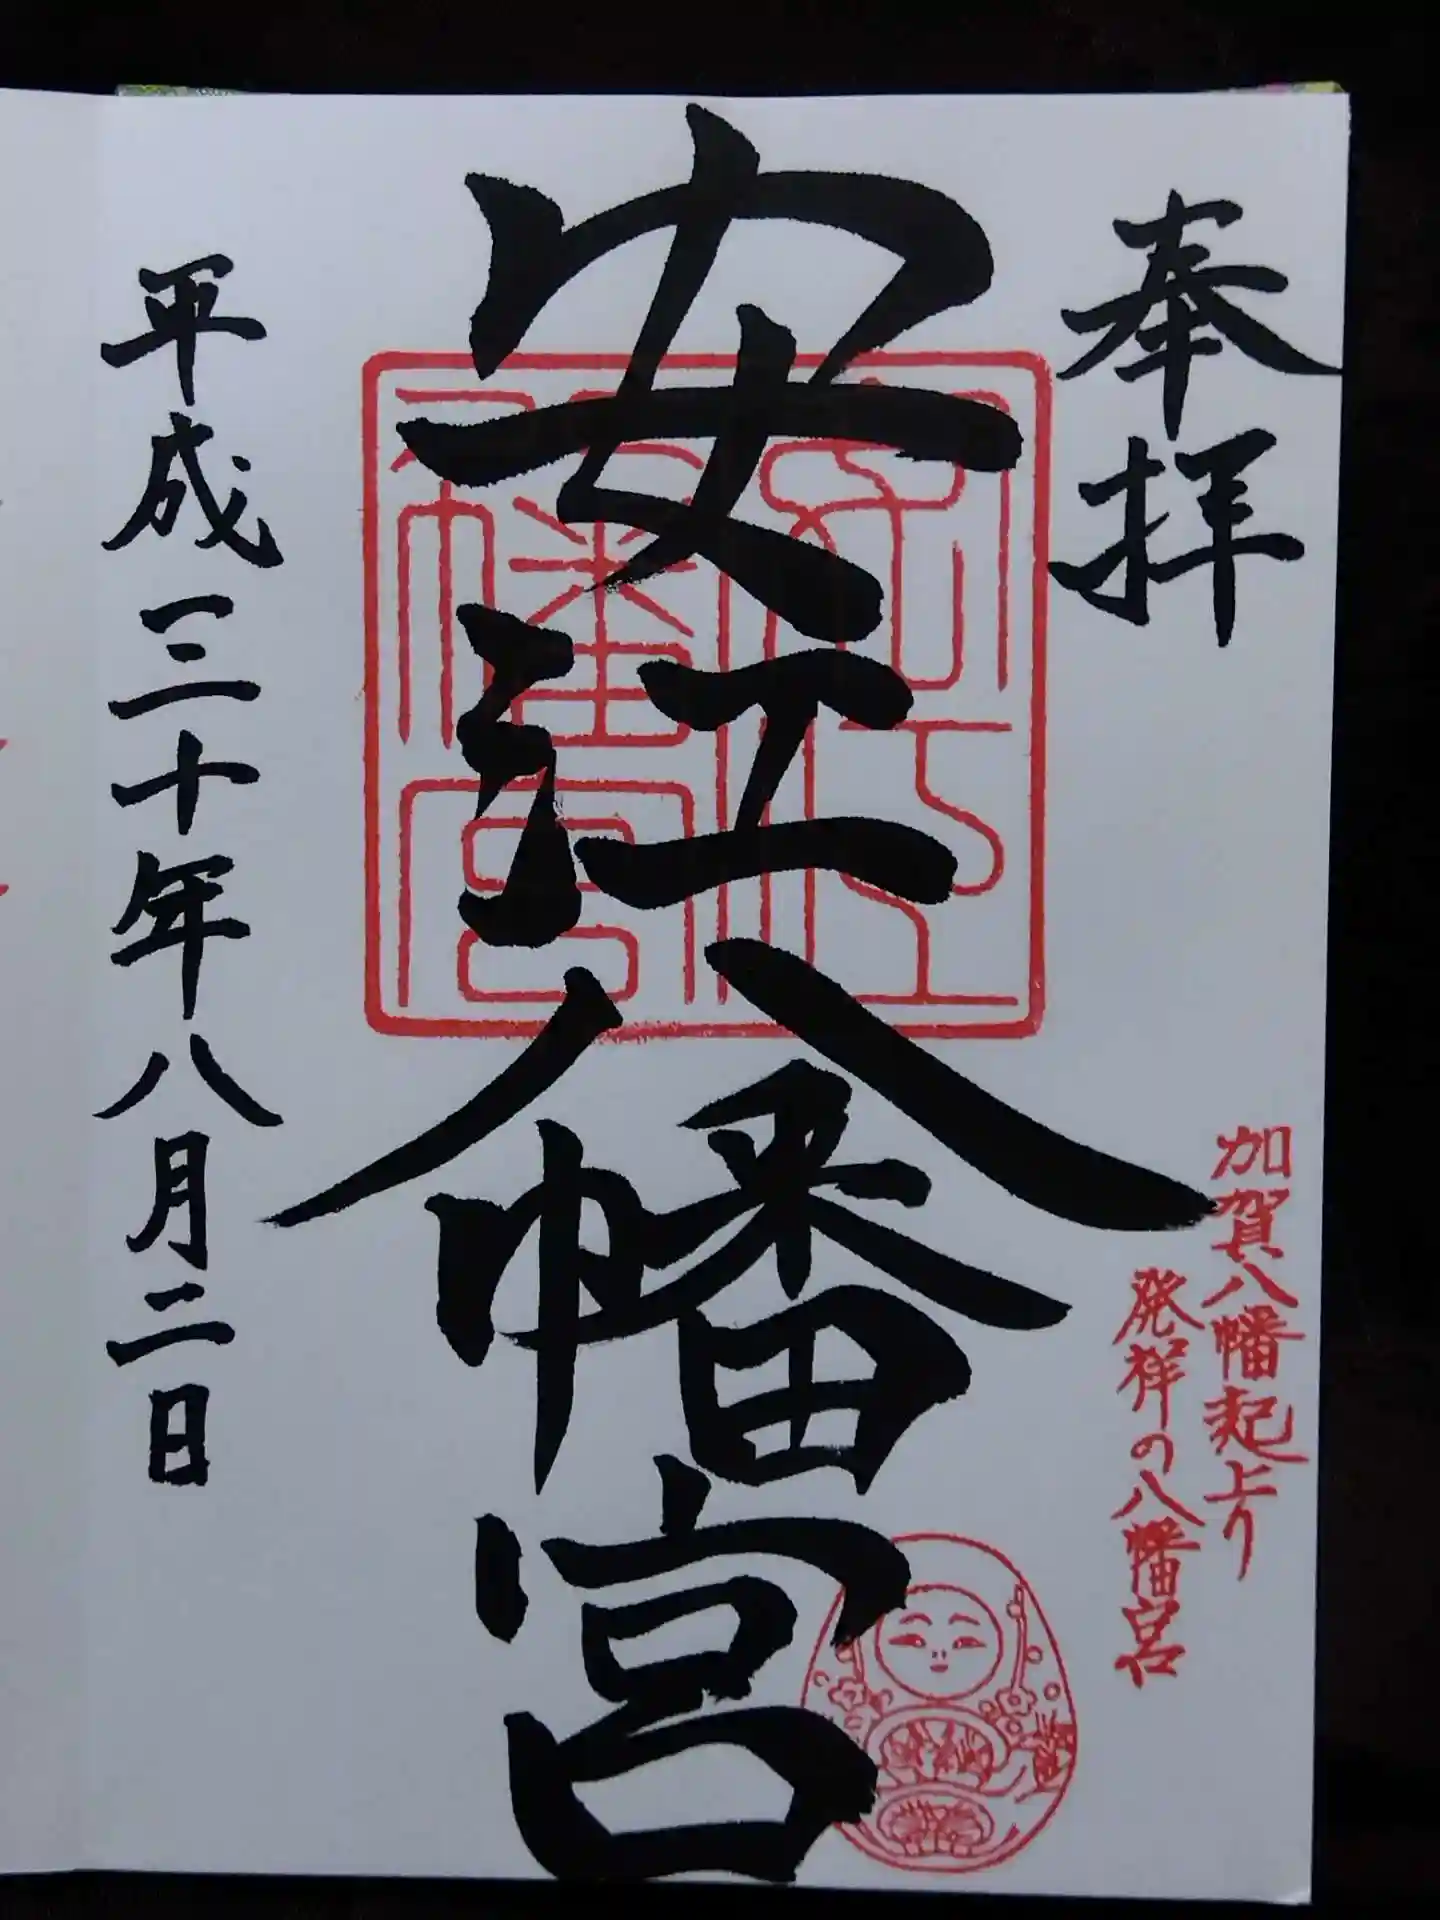 奉拝
加賀八幡起上り
発祥の八幡宮
安江八幡宮
平成三十年八月二日